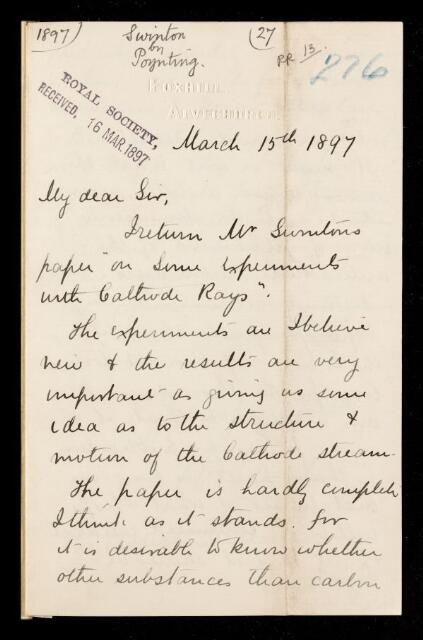 1897
Swinton
on
Poynting.
27
RR 13.
276
FOXHILL,
ALVECHURCH.
ROYAL SOCIETY,
RECEIVED, 16 MAR. 1897
March 15th 1897
My dear Sir,
I return Mr Swintons
paper "on some experiments
with Cathode Rays".
The experiments are I believe
new & the results are very
important as giving us some
idea as to the structure &
motion of the Cathode stream.
The paper is hardly complete
I think as it stands. for
it is desirable to know whether
other substances than carbon